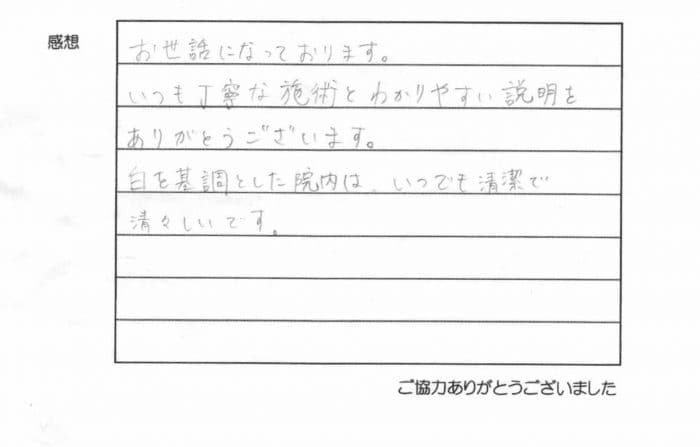 感想
お世話になっております。
いつも丁寧な施術とわかりやすい説明を
ありがとうございます。
白を基調とした院内は、いつでも清潔で
清々しいです。
ご協力ありがとうございました